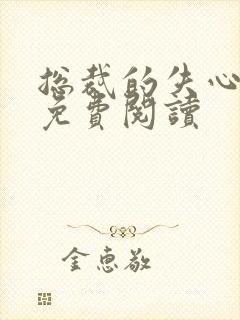 总裁的失心
免費閱讀
金惠敬